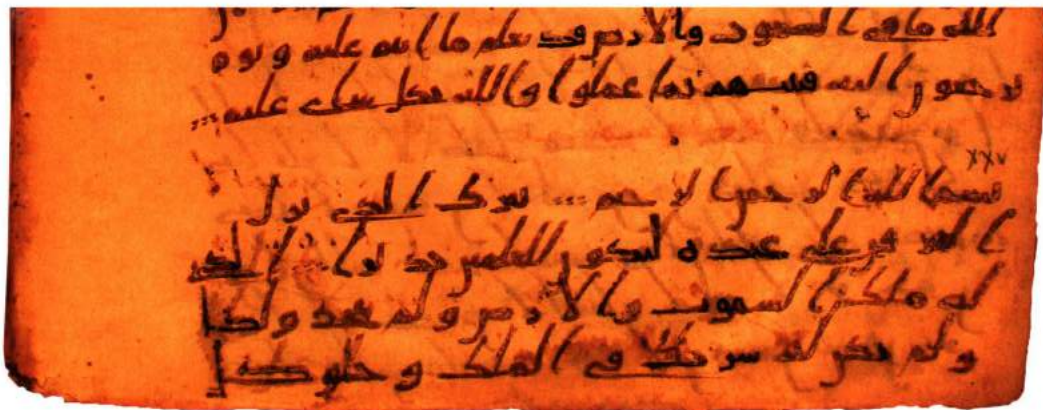 لله ما في السموت والارض قد يعلم ما انتم عليه ويوم
يرجعون اليه فينبهم بما عملوا والله بكل شاى عليم
XXV
بسم الله الرحمن الرحيم تبرك الذي نزل
الفرقن على عبده ليكون للعلمين نذيرا الذي
له ملك السموت والارض ولم يتخذ ولدا
ولم يكن له شريك في الملك وخلق كل